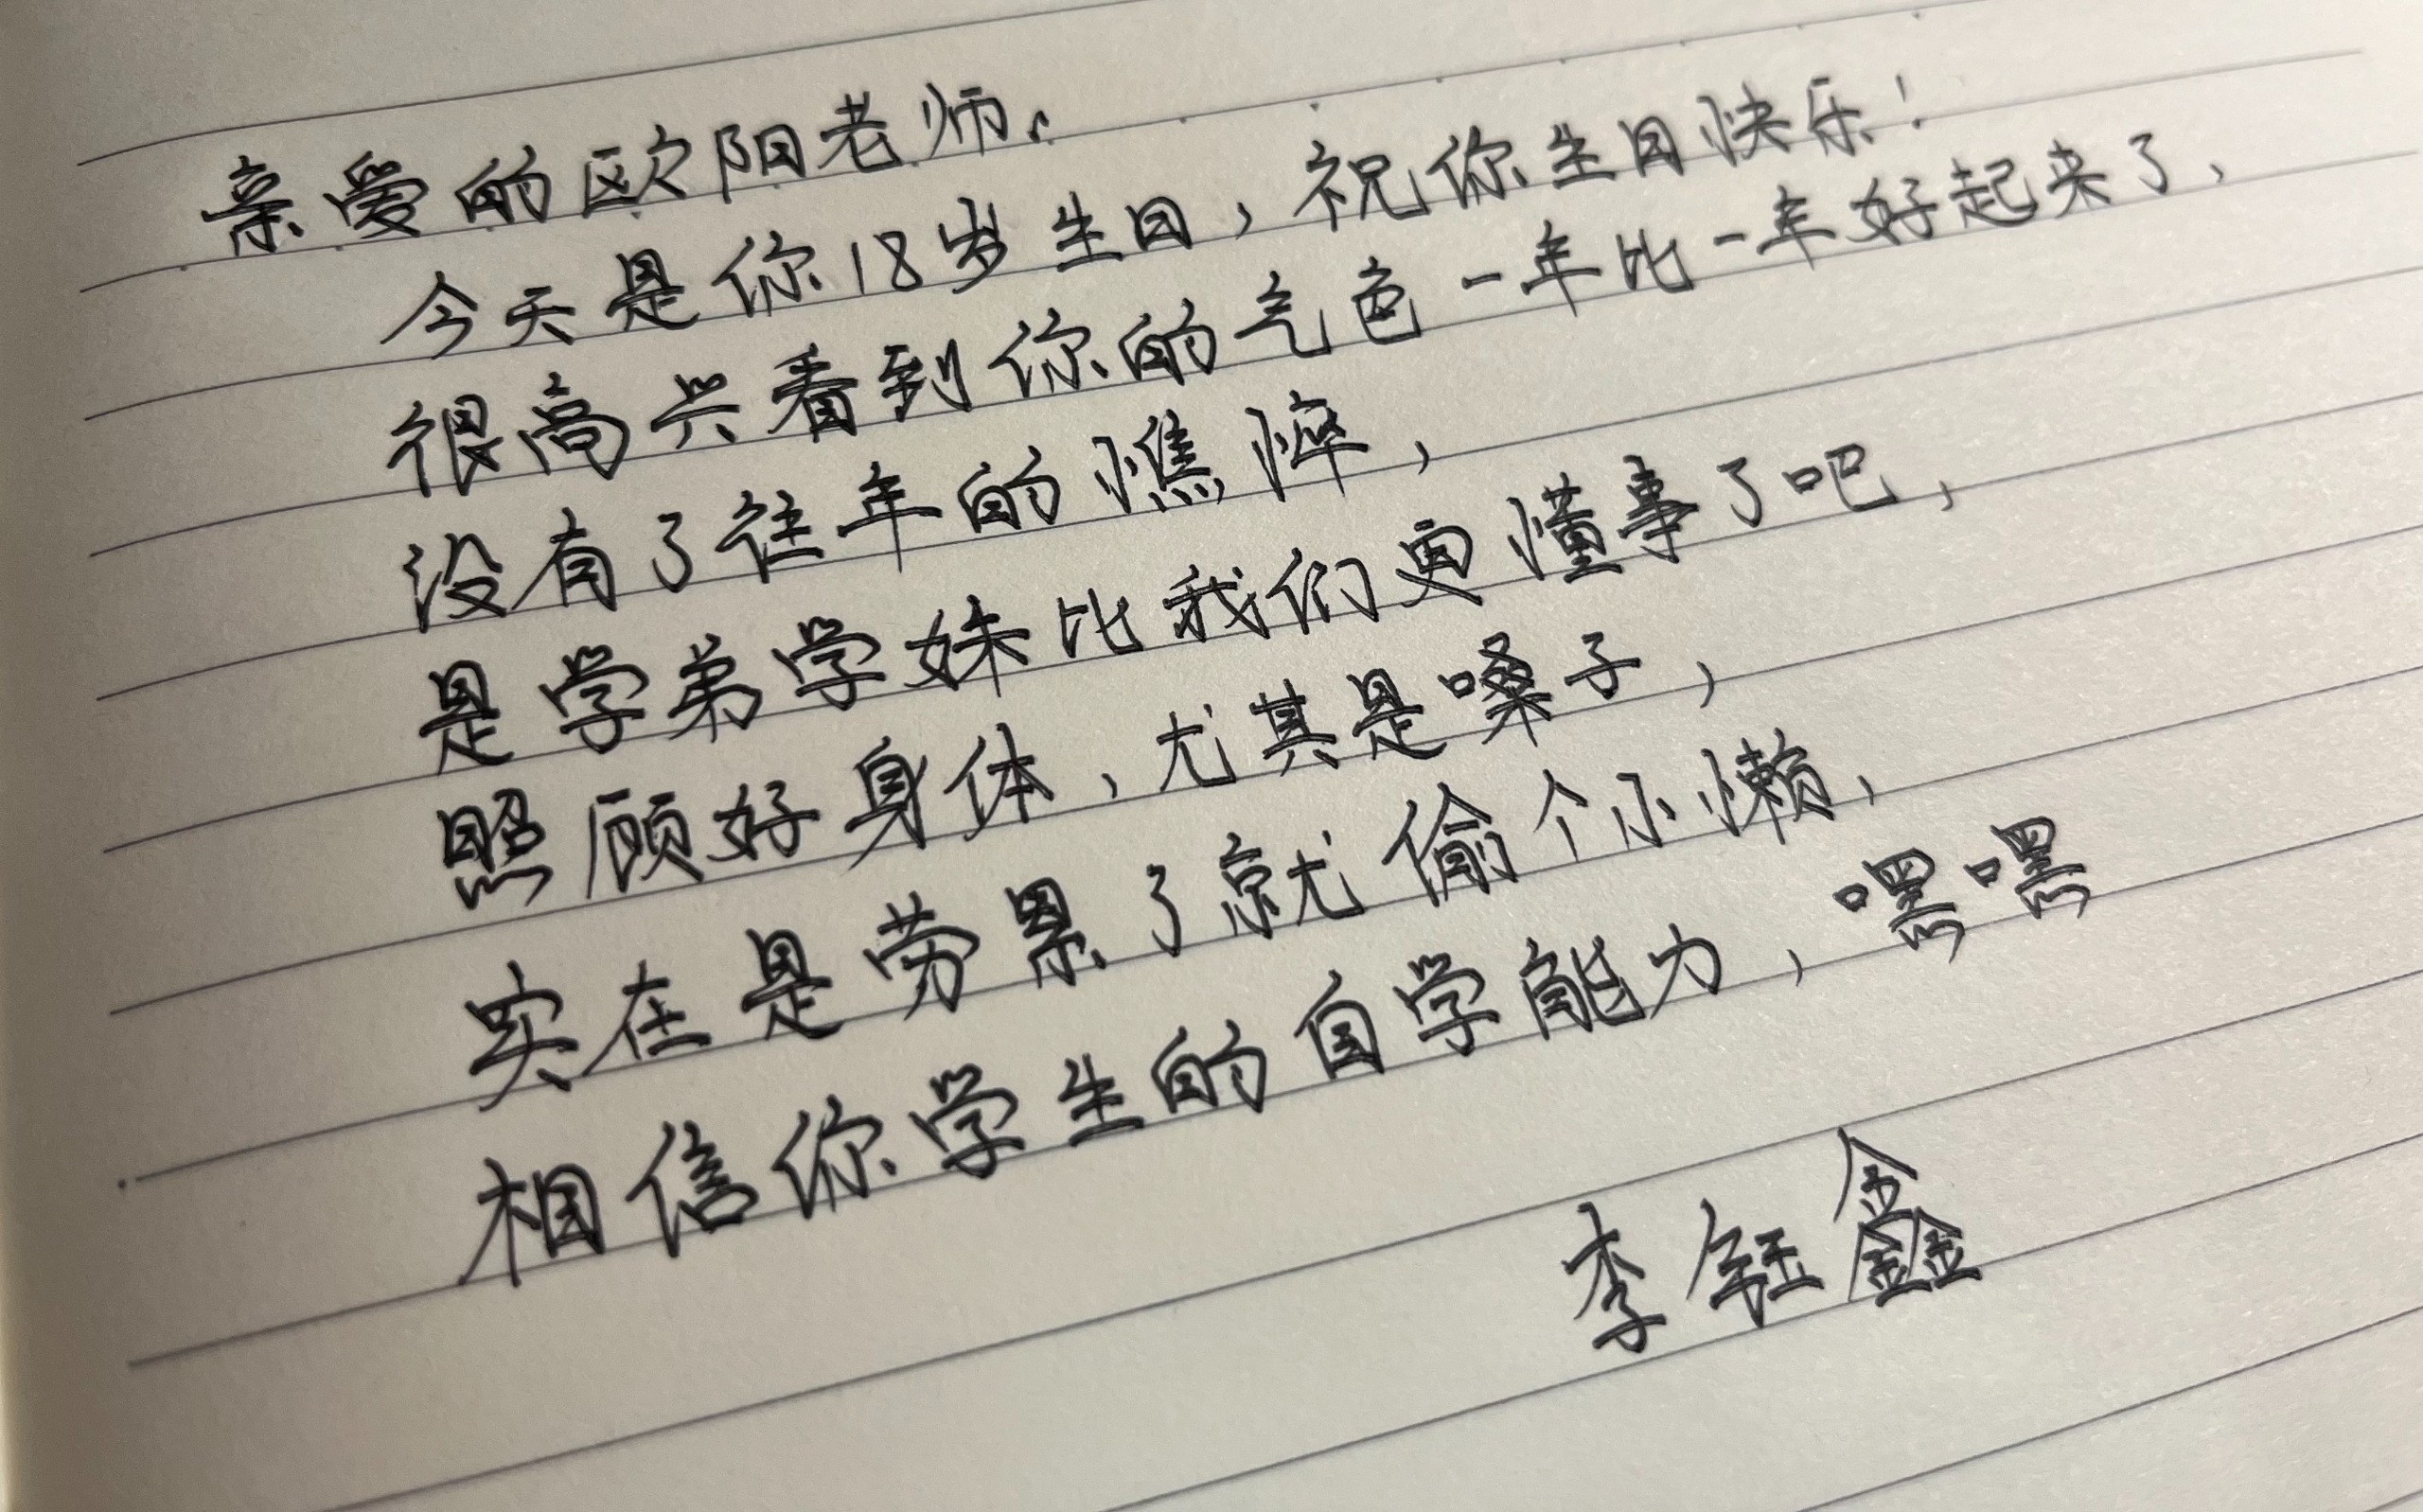 亲爱的欧阳老师、
今天是你18岁生日，祝你生日快乐！
很高兴看到你的气色一年比一年好起来了，
没有了往年的憔悴，
是学弟学妹比我们更懂事了吧，
照顾好身体，尤其是嗓子，
实在是劳累了就偷个小懒，
相信你学生的自学能力，嘿嘿
李钰鑫